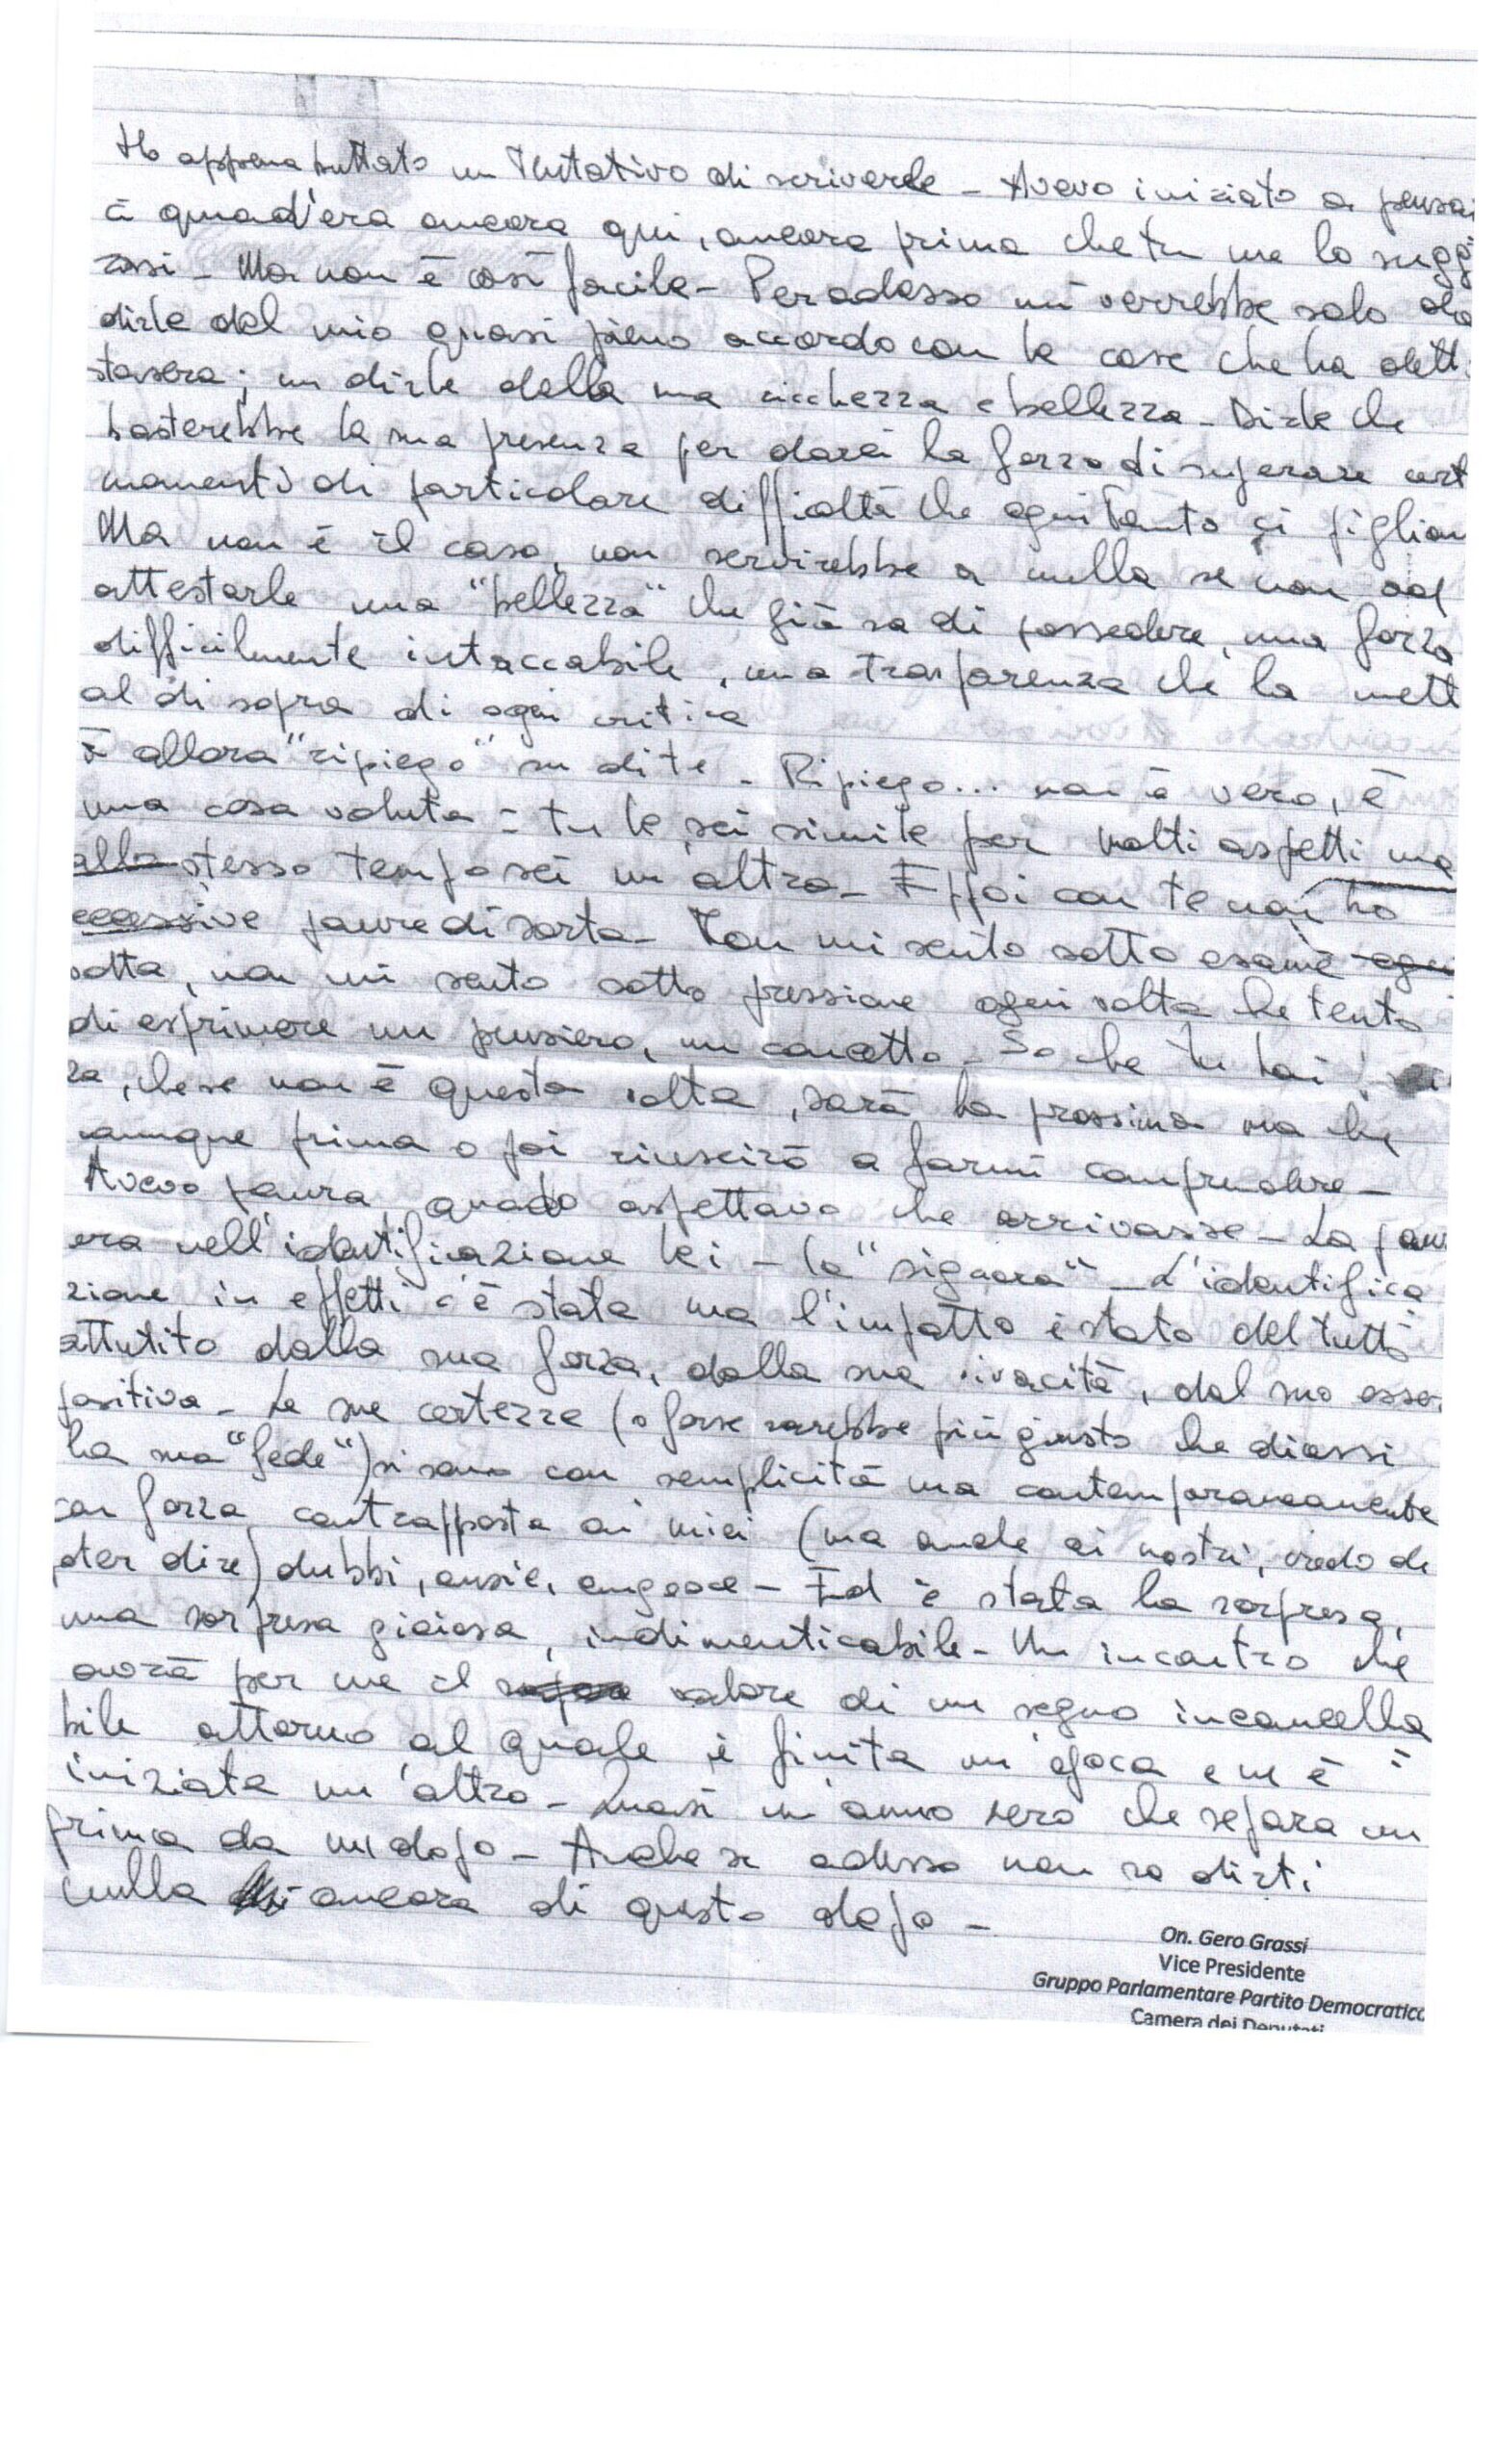 Ho appena buttato un tentativo di scriverle - Avevo iniziato a pensar
ci quand'era ancora qui, ancora prima che tu me lo sugge
rissi - Ma non è così facile - Per adesso mi verrebbe solo da
dirle del mio quasi pieno accordo con le cose che ha dett
stasera; un dirle della sua ricchezza e bellezza - Dirle che
basterebbe la sua presenza per darci la forza di superare cert
momenti di particolare difficoltà che ogni tanto ci piglian
Ma non è il caso, non servirebbe a nulla se non ad
attestarle una "bellezza" che già sa di possedere, una forza
difficilmente intaccabile, una trasparenza che la mett
al di sopra di ogni critica
E allora "ripiego" su di te - Ripiego... non è vero, è
una cosa voluta = tu le sei simile per molti aspetti ma
allo stesso tempo sei un'altra - E poi con te non ho
eccessive paure di sorta - Non mi sento sotto esame ogni
volta, non mi sento sotto pressione ogni volta che tento
di esprimere un pensiero, un concetto - So che tu hai
za, che se non è questa volta, sarà la prossima ma che
comunque prima o poi riuscirò a farmi comprendere -
Avevo paura quando aspettavo che arrivasse - La paura
era nell'identificazione lei - la "signora" - L'identifica
zione in effetti c'è stata ma l'impatto è stato del tutto
attutito dalla sua forza, dalla sua vivacità, dal suo esser
positiva - Le sue certezze (o forse sarebbe più giusto che dicessi
la sua "fede") si sono con semplicità ma contemporaneamente
con forza contrapposte ai miei (ma anche ai nostri, credo di
poter dire) dubbi, ansie, angosce - Ed è stata la sorpresa,
una sorpresa gioiosa, indimenticabile - Un incontro che
avrà per me il valore di un segno incancella
bile attorno al quale è finita un'epoca e ne è
iniziata un'altra - Quasi un anno zero che separa un
prima da un dopo - Anche se adesso non so dirti
nulla ancora di questo dopo -
On. Gero Grassi
Vice Presidente
Gruppo Parlamentare Partito Democratico
Camera dei Deputati